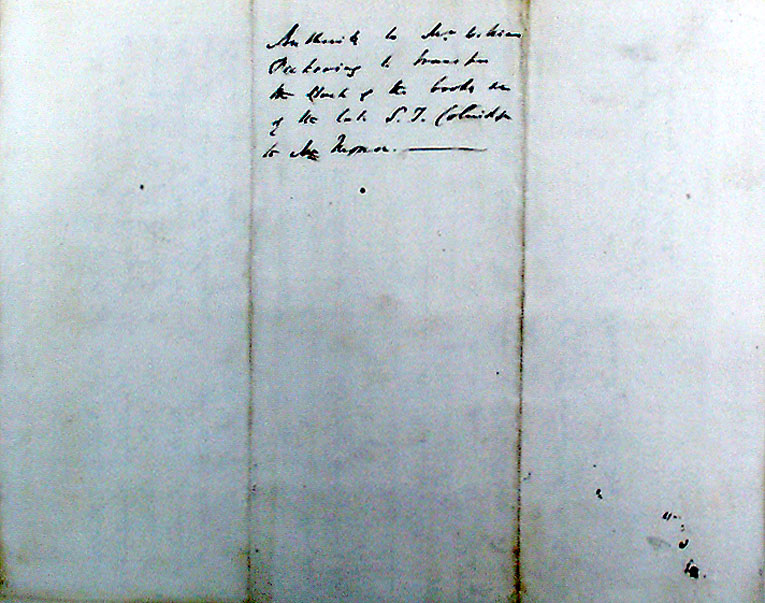 Authority to Mr William
Pickering to transfer
the Stock of the books
of the late S. T. Coleridge
to Mr Moxon.